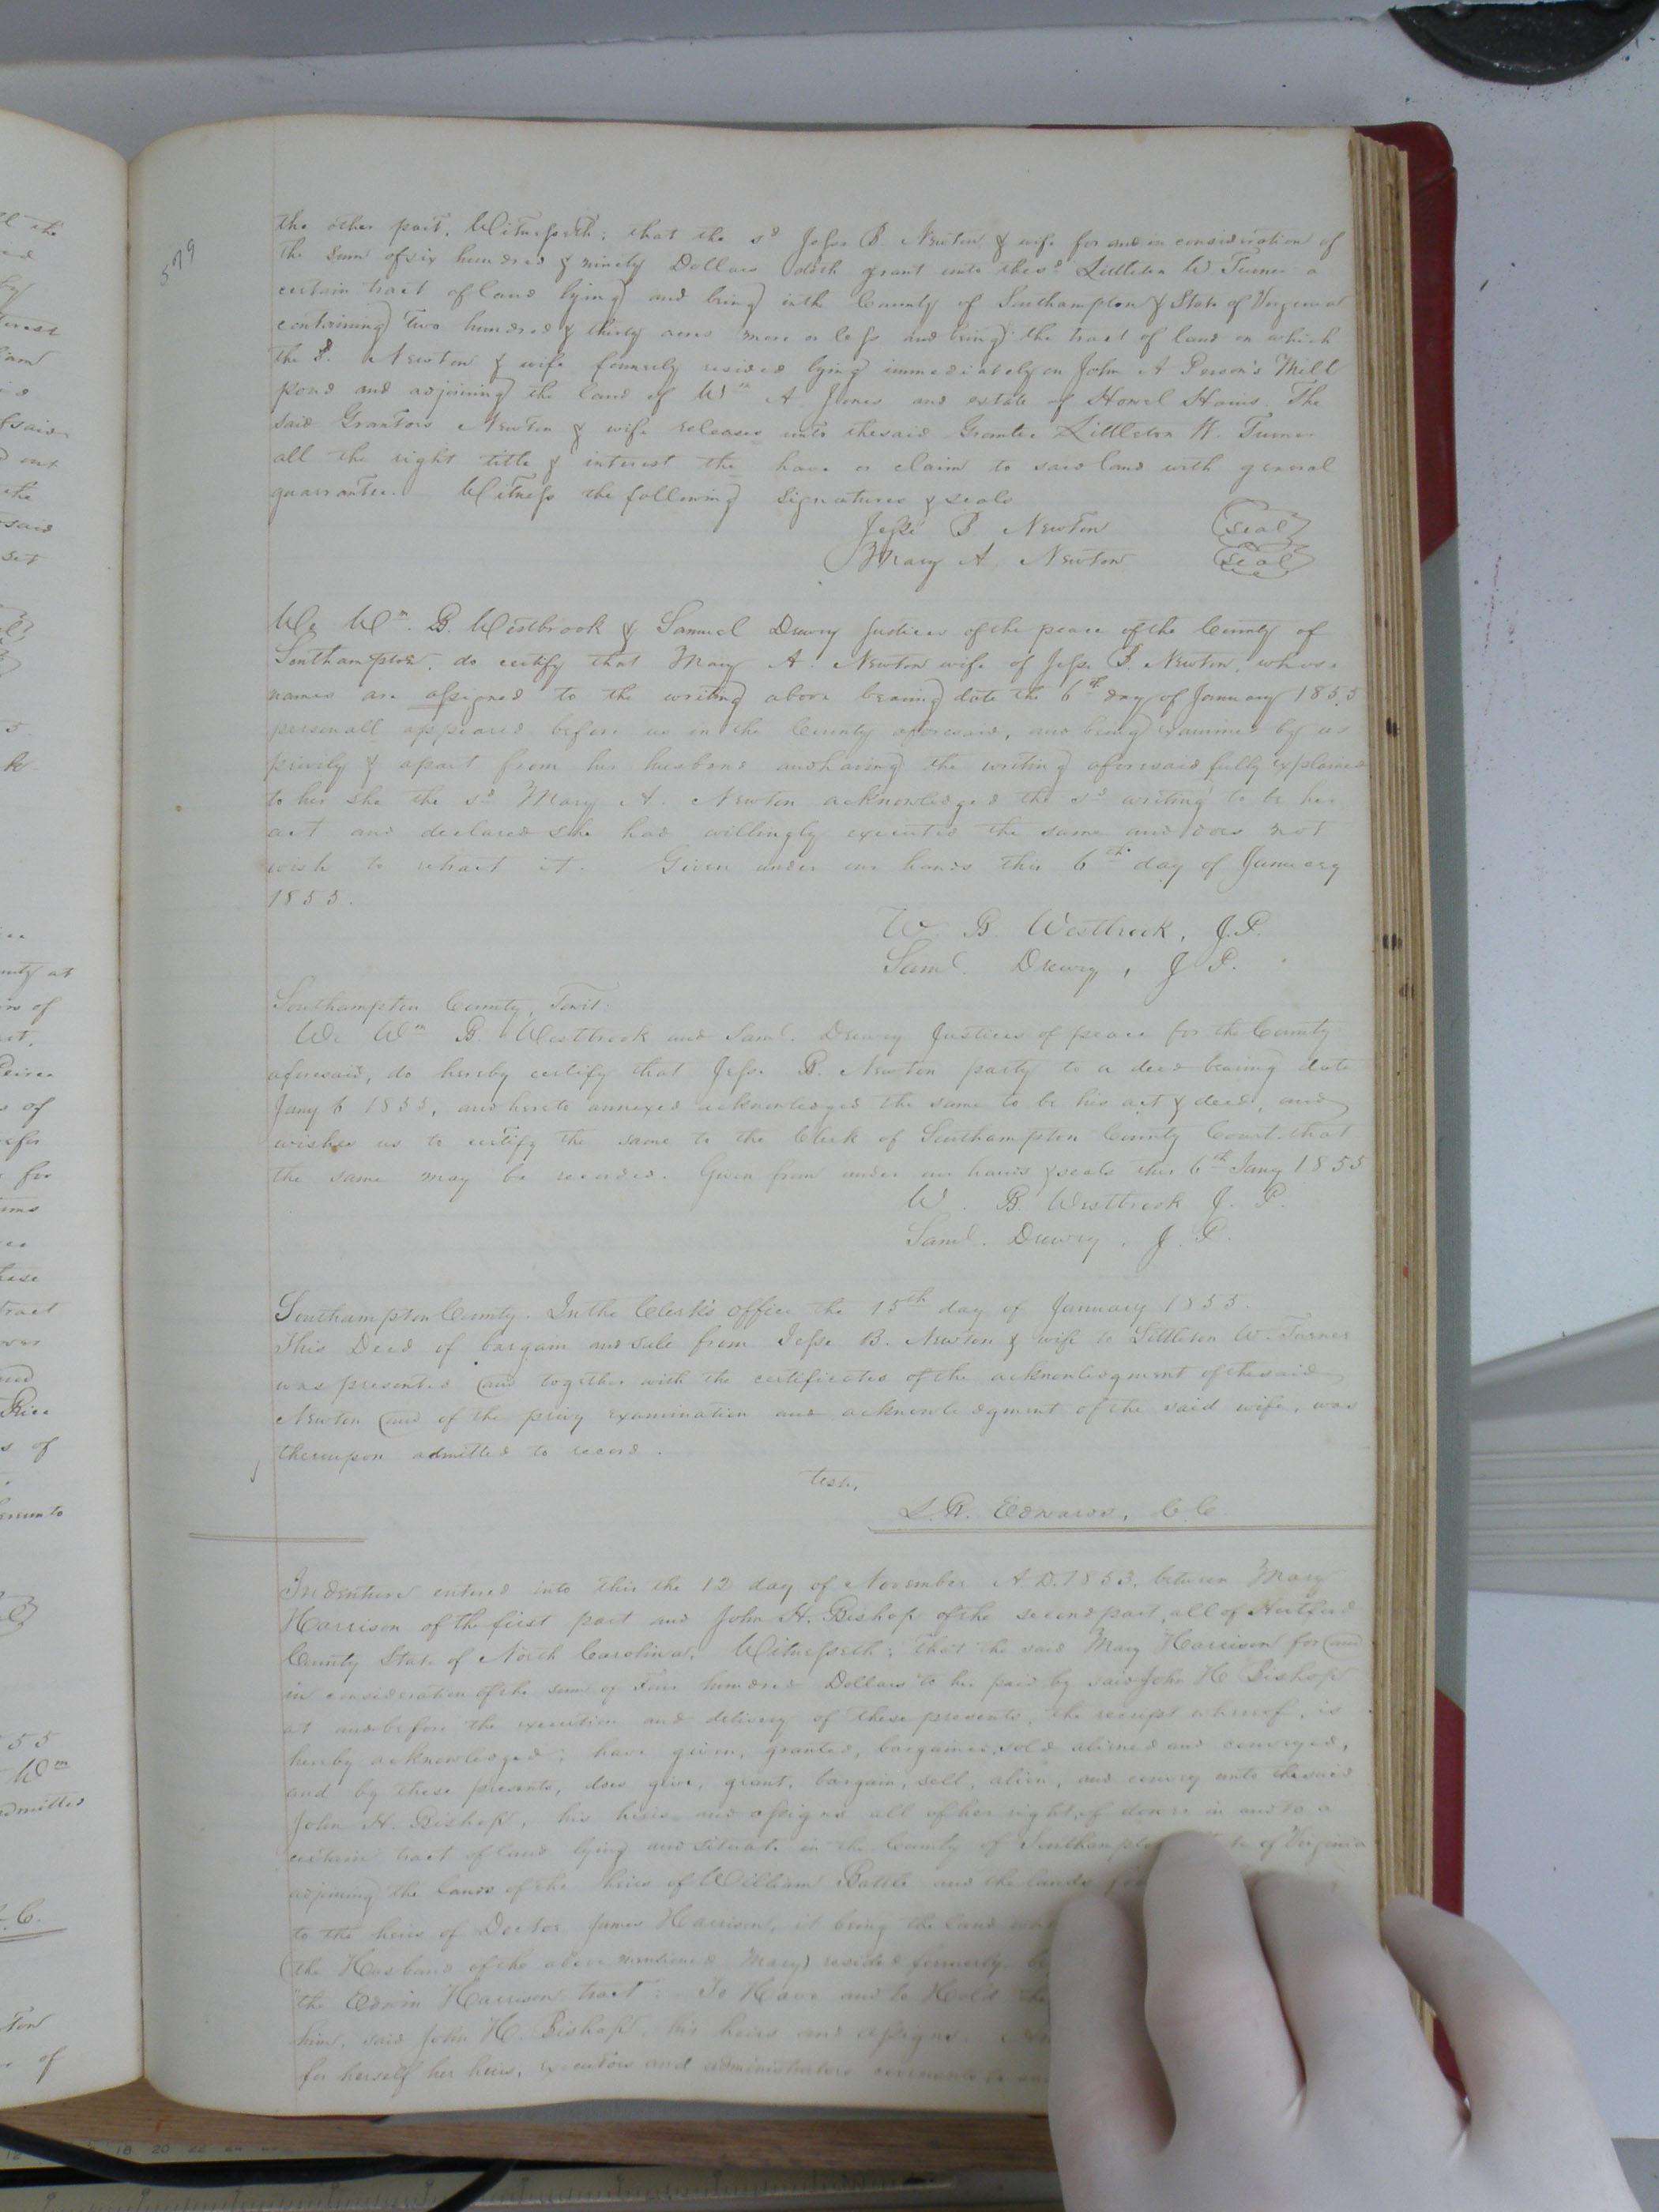 579
the other part. Witnesseth: that the sd Jesse B. Newton & wife for and in consideration of
the sum of six hundred & ninety Dollars doth grant unto the sd Littleton W. Turner a
certain tract of land lying and being in the County of Southampton & State of Virginia
containing two hundred & thirty acres more or less and being the tract of land on which
the sd Newton & wife formerly resided lying immediately on John A Person's Mill
pond and adjoining the land of Wm A. Jones and estate of Howel Harris. The
said Grantors Newton & wife releases unto the said Grantee Littleton W. Turner
all the right title & interest the have or claim to said land with general
guarrantee. Witness the following signatures & seals
Jesse B Newton (seal)
Mary A. Newton (seal)
We Wm. B. Westbrook & Samuel Drewry Justices of the peace of the County of
Southampton. do certify that Mary A. Newton wife of Jesse B. Newton, whose
names are assigned to the writing above bearing date the 6th day of January 1855
personall appeared before us in the County aforesaid, and being examined by us
privily & apart from her husband and having the writing aforesaid fully explained
to her she the sd Mary A. Newton acknowledged the sd writing to be her
act and declared she had willingly executed the same and does not
wish to retract it. Given under our hands this 6th day of January
1855.
W B Westbrook, J.P.
Saml. Drewry, J P.
Southampton County, Towit:
We Wm B. Westbrook and Saml. Drewry Justices of peace for the County
aforesaid, do hereby certify that Jesse B. Newton party to a deed bearing date
Jany 6 1855, and hereto annexed acknowledged the same to be his act & deed, and
wishes us to certify the same to the Clerk of Southampton County Court that
the same may be recorded. Given from under our hands & seals this 6th Jany 1855
W. B. Westbrook J. P.
Saml. Drewry, J. P.
Southampton County. In the Clerk's office the 15th day of January 1855.
This Deed of bargain and sale from Jesse B. Newton & wife to Littleton W. Turner
was presented and together with the certificates of the acknowledgment of the said
Newton and of the privy examination and acknowledgment of the said wife, was
thereupon admitted to record.
Teste,
L. R. Edwards, C C
Indenture entered into this the 12 day of November A.D. 1853. between Mary
Harrison of the first part and John H. Bishop of the second part, all of Hertford
County State of North Carolina. Witnesseth; that the said Mary Harrison for and
in consideration of the sum of Four hundred Dollars to her paid by said John H Bishop
at and before the execution and delivery of these presents, the receipt whereof, is
hereby acknowledged; have given, granted, bargained, sold aliened and conveyed,
and by these presents, does give, grant, bargain, sell, alien, and convey unto the said
John H. Bishop, his heirs and assigns all of her right of dower in and to a
certain tract of land lying and situate in the County of Southampton of Virginia
adjoining the lands of the heirs of William Battle and the lands
to the heirs of Doctor James Harrison, it being the land
(the Husband of the above mentioned Mary) resided formerly
"the Edwin Harrison tract: - To Have and to Hold the
him, said John H. Bishop, his heirs and assigns.
for herself her heirs, executors and administrators covenants to